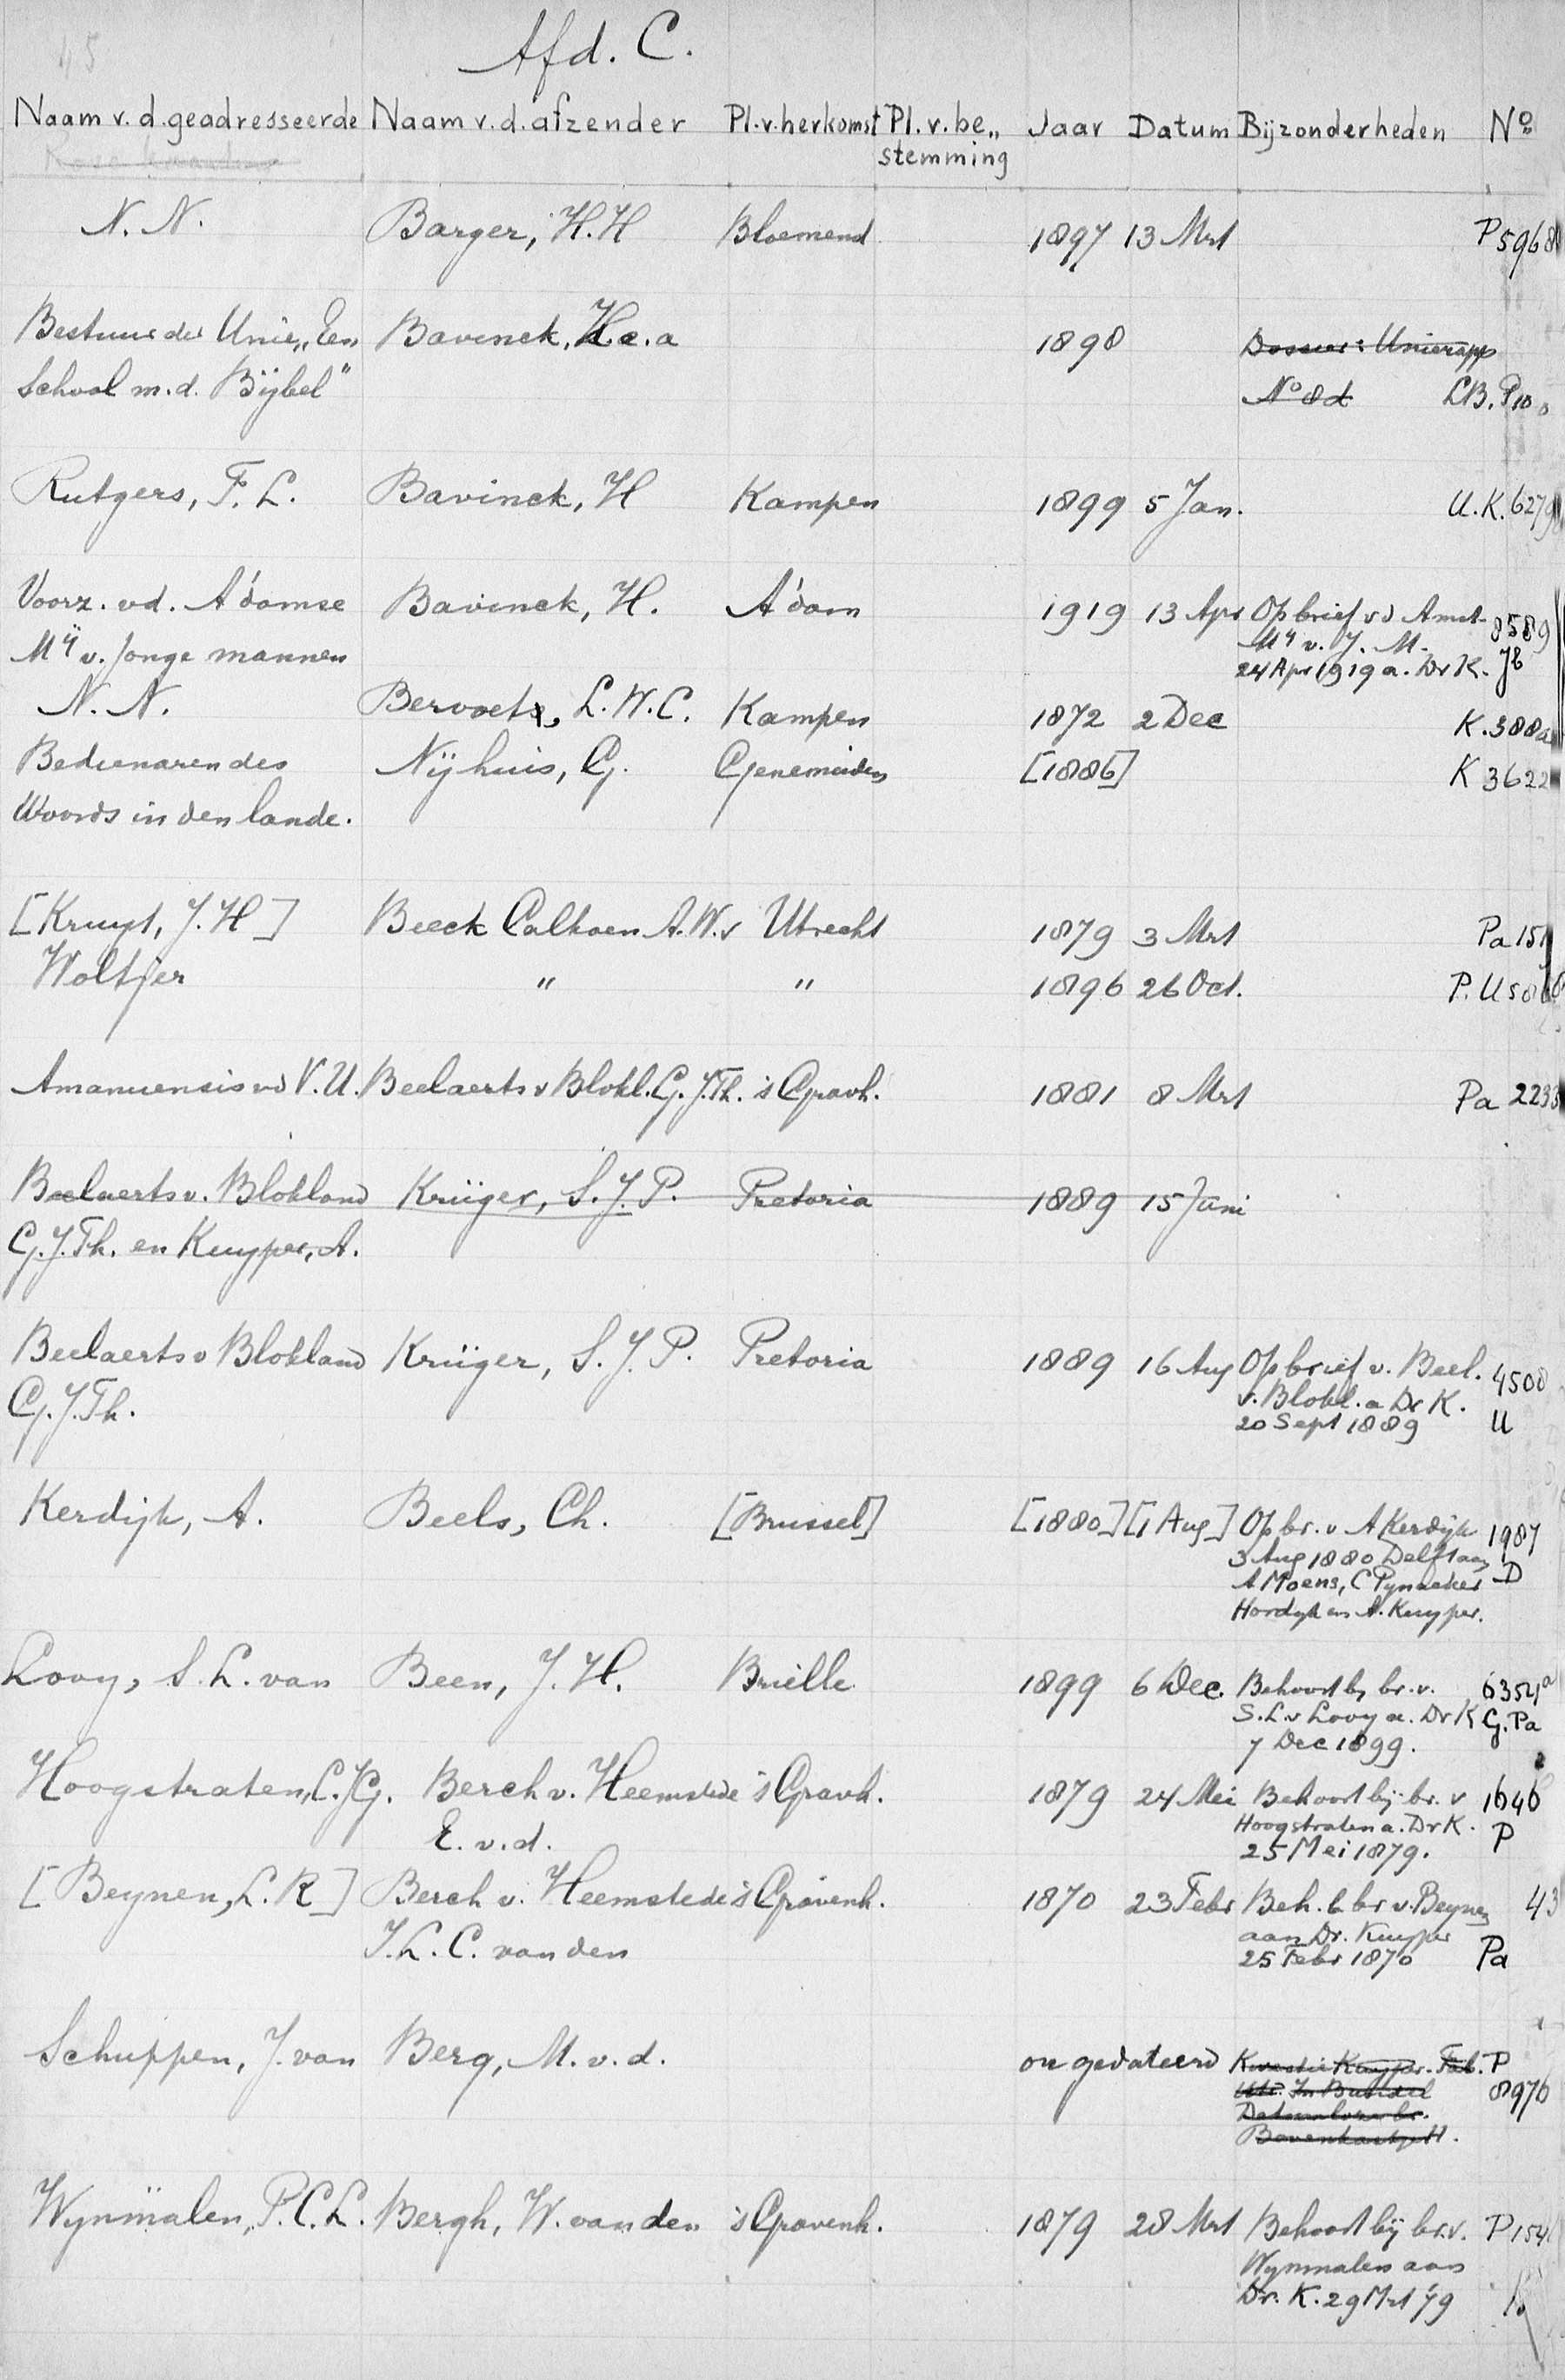 45
Afd. C.
Naam v. d. geadresseerde Naam v. d. afzender Pl. v. herkomst Pl. v. be„ Jaar Datum Bijzonderheden No
stemming
N. N. Barger, H. H Bloemend 1897 13 Mrt P 5968
Bestuur der Unie „Een Bavinck, H. e. a 1898 Dossier: Unierapp
School m. d. Bijbel" No 8d LB. P 10
Rutgers, F. L. Bavinck, H Kampen 1899 5 Jan. U. K. 6279
Voorz. vd. A'damse Bavinck, H. A'dam 1919 13 Apr Op brief vd Amst. 8589
Mij v. Jonge mannen Mij v. J. M. Jb
24 Apr 1919 a. Dr K.
N. N. Bervoets, L. W. C. Kampen 1872 2 Dec K. 388a
Bedienaren des Nijhuis, G. Genemuiden [1886] K 3622
Woords in den lande.
[Kruyt, J. H] Beeck Calkoen A. W. v Utrecht 1879 3 Mrt Pa 151
Woltjer " " 1896 26 Oct. P. U 586
Amanuensis vd V. U. Beelaerts v Blokl. G. J. Th. 's Gravh. 1881 8 Mrt Pa 2233
Beelaerts v. Blokland Krüger, S. J. P. Pretoria 1889 15 Juni
G. J. Th. en Kuyper, A.
Beelaerts v Blokland Krüger, S. J. P. Pretoria 1889 16 Aug Op brief v. Beel. 4500
G. J. Th. v. Blokl. a Dr K. U
20 Sept 1889
Kerdijk, A. Beels, Ch. [Brussel] [1880] [1 Aug] Op br. v A Kerdijk 1987
3 Aug 1880 Delft aan D
A Moens, C Pynacker
Hordyk en A. Kuyper.
Looy, S. L. van Been, J. H. Brielle 1899 6 Dec. Behoort bij br. v. 6354a
S. L. v Looy a. Dr K G. Pa
7 Dec 1899.
Hoogstraten, C. J. G. Berch v. Heemstede 's Gravh. 1879 24 Mei Behoort bij br. v 1646
E. v. d. Hoogstraten a. Dr K. P
25 Mei 1879.
[Beynen, L. R] Berch v. Heemstede 's Gravenh. 1870 23 Febr Beh. b br v. Beynen 43
J. L. C. van den aan Dr. Kuyper
25 Febr 1870 Pa
Schuppen, J. van Berg, M. v. d. ongedateerd Kwestie Kuyper-Fab. P
In Bundel 8976
Datumloze br.
Wynmalen, P. C. L. Bergh, W. van den 's Gravenh. 1879 28 Mrt Behoort bij br. v. P 154
Wynmalen aan
Dr. K. 29 Mrt '79